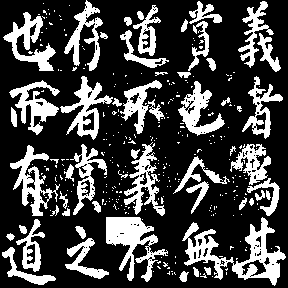 義者為其
賞也今無
道不義存
存者賞之
也而有道